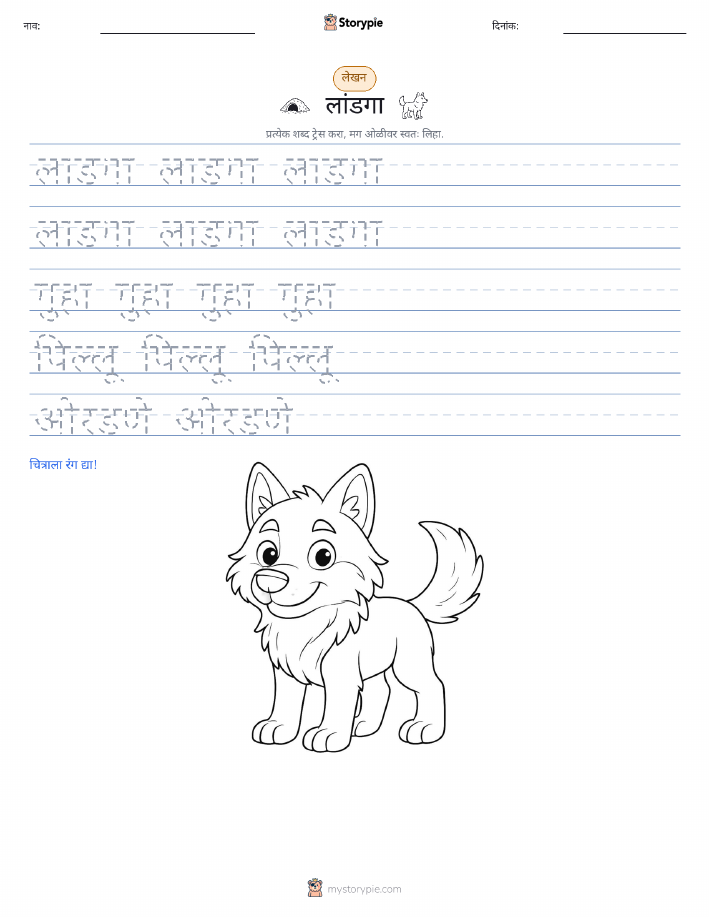 नाव:
Storypie
दिनांक:
लेखन
लांडगा
प्रत्येक शब्द ट्रेस करा, मग ओळीवर स्वतः लिहा.
लांडगा लांडगा लांडगा
लांडगा लांडगा लांडगा
गुहा गुहा गुहा गुहा
पिल्लू पिल्लू पिल्लू
ओरडणे ओरडणे
चित्राला रंग द्या!
mystorypie.com